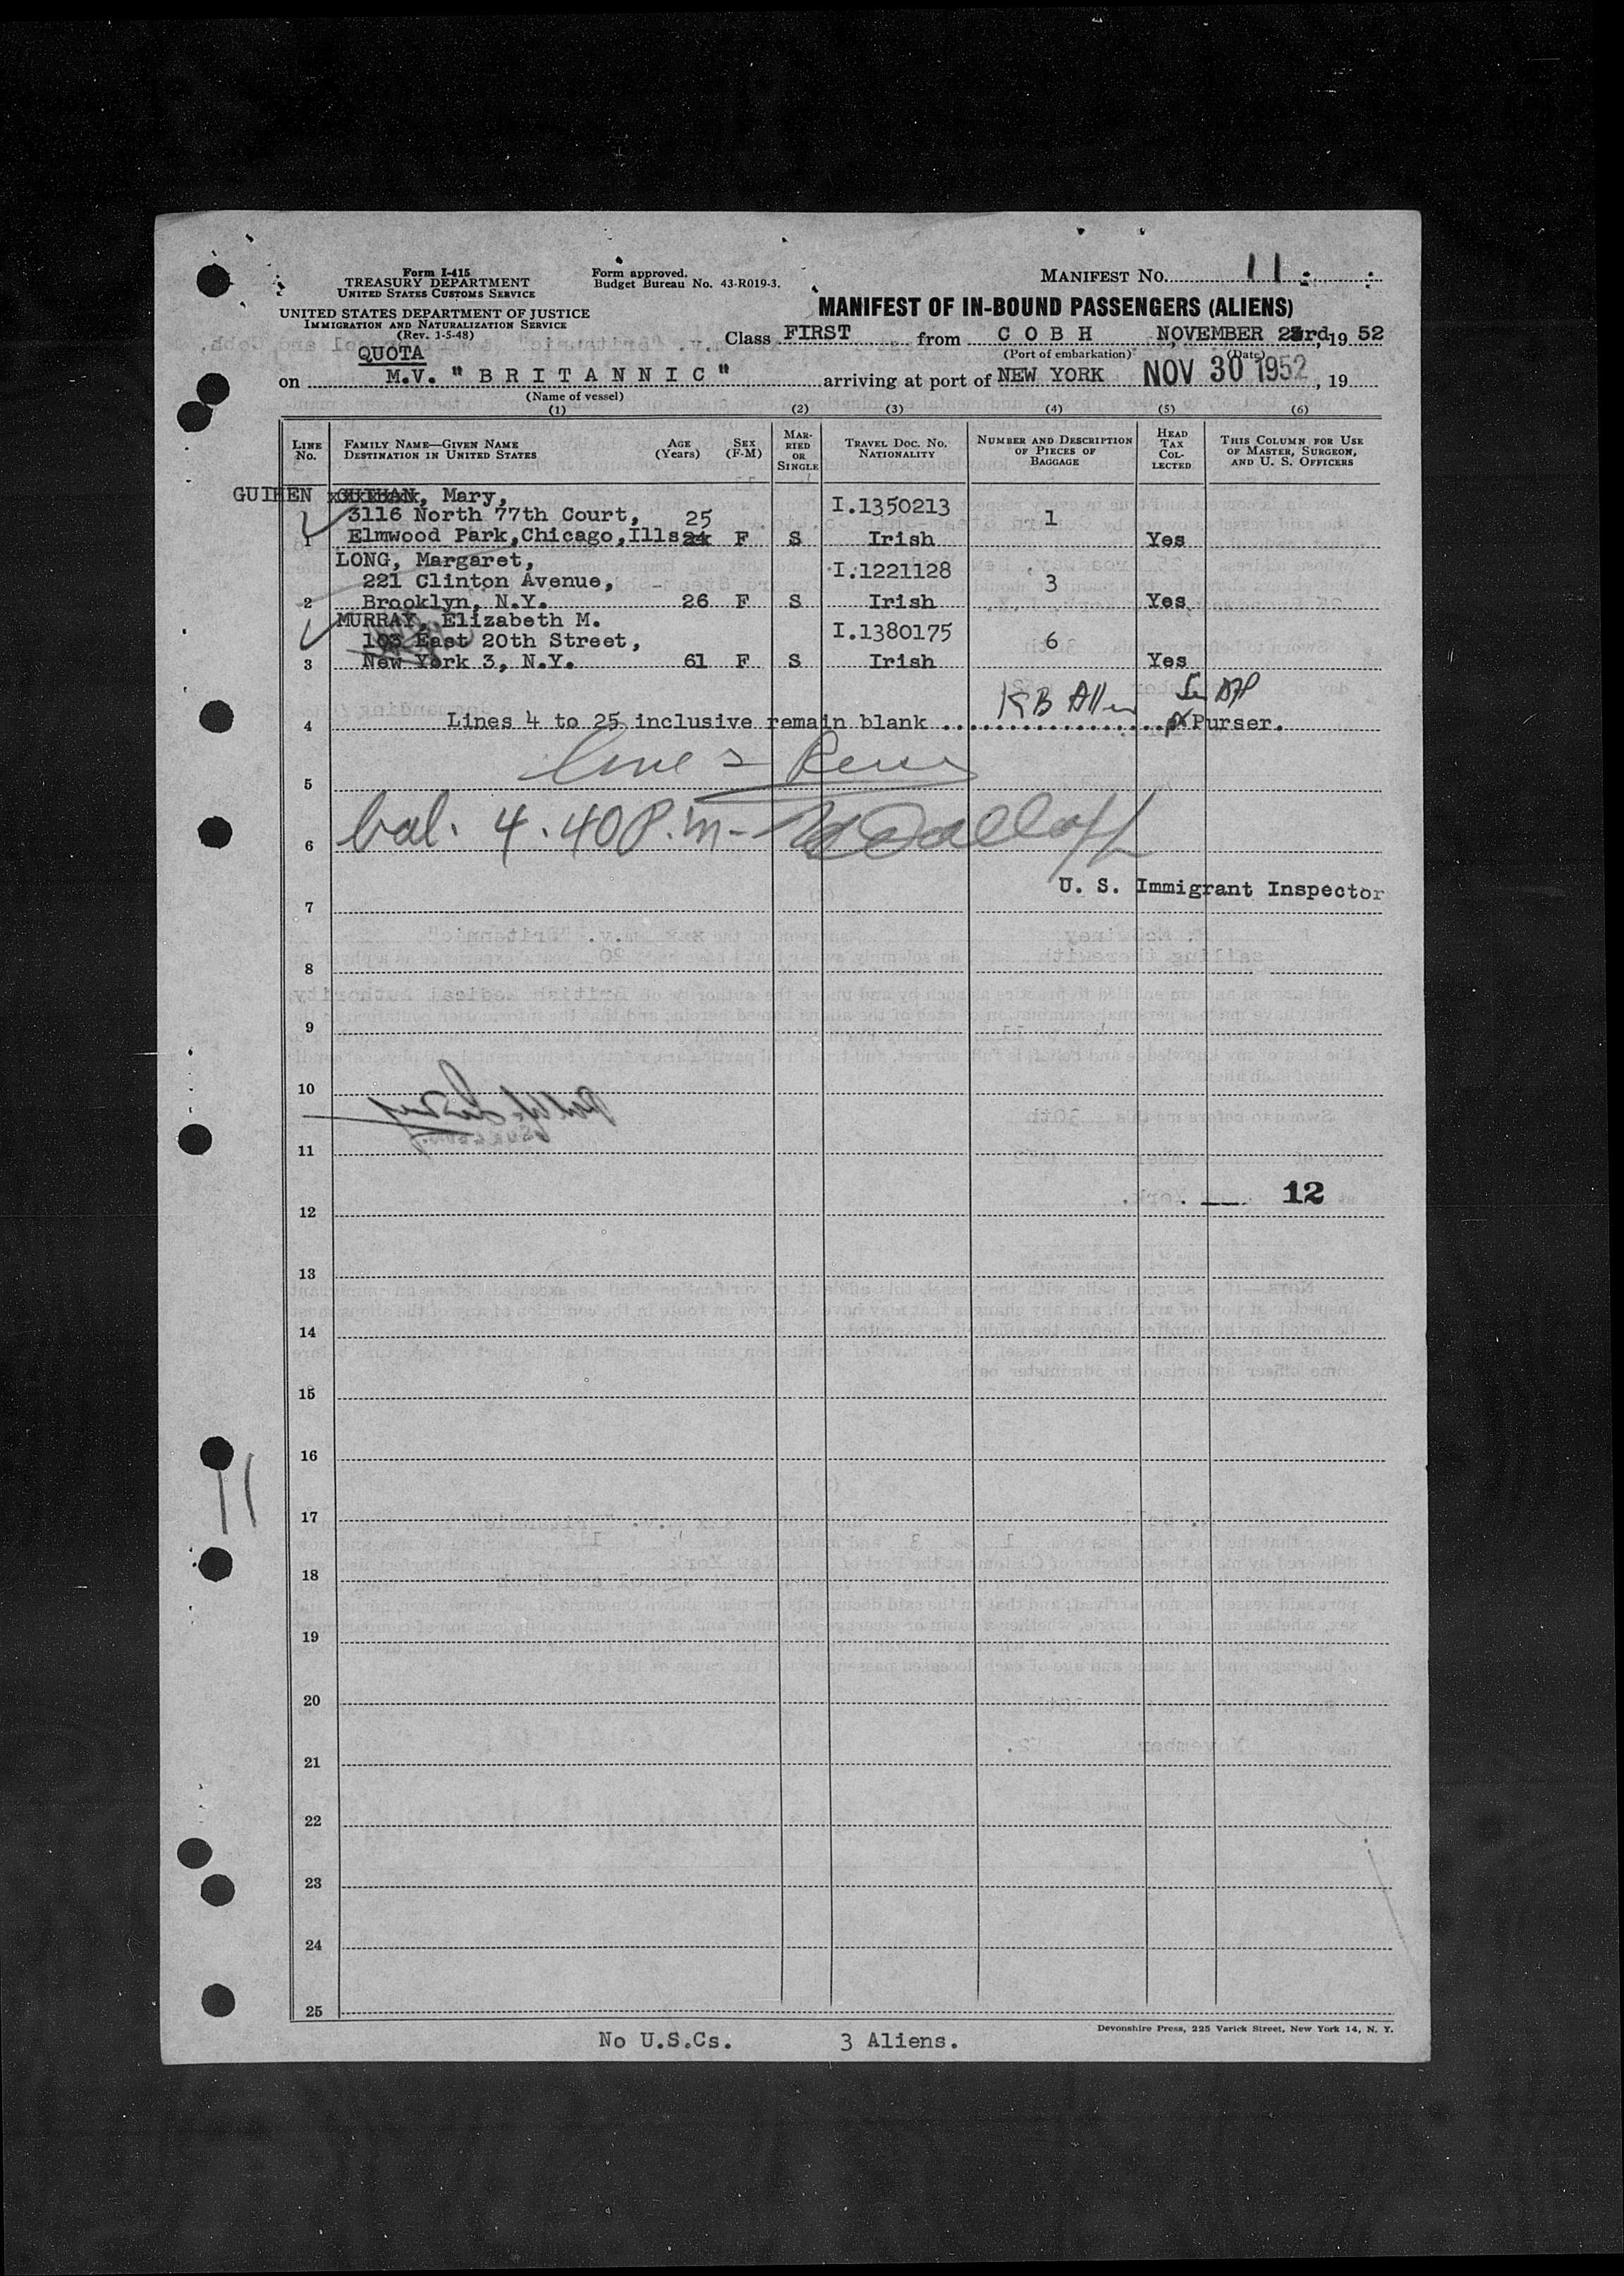 Form I-415
TREASURY DEPARTMENT
UNITED STATES CUSTOMS SERVICE
Form approved.
Budget Bureau No. 43-R019-3.
MANIFEST NO. 11
UNITED STATES DEPARTMENT OF JUSTICE
IMMIGRATION AND NATURALIZATION SERVICE
(Rev. 1-5-48)
MANIFEST OF IN-BOUND PASSENGERS (ALIENS)
Class FIRST from C O B H NOVEMBER 23rd, 19 52
(Port of embarkation) (Date)
QUOTA
on M.V. "BRITANNIC" arriving at port of NEW YORK NOV 30 1952, 19
(Name of vessel)
(1) (2) (3) (4) (5) (6)
LINE NO. FAMILY NAME—GIVEN NAME DESTINATION IN UNITED STATES AGE (Years) SEX (F-M) MARRIED OR SINGLE TRAVEL DOC. NO. NATIONALITY NUMBER AND DESCRIPTION OF PIECES OF BAGGAGE HEAD TAX COLLECTED THIS COLUMN FOR USE OF MASTER, SURGEON, AND U. S. OFFICERS
GUIHEN GUIHAN, Mary,
3116 North 77th Court, 25 I.1350213 1
1 Elmwood Park, Chicago, Ills 24 F S Irish Yes
LONG, Margaret, I.1221128
221 Clinton Avenue, - 3
2 Brooklyn, N.Y. 26 F S Irish Yes
MURRAY, Elizabeth M. I.1380175
103 East 20th Street, 6
3 New York 3, N.Y. 61 F S Irish Yes
K B Allen
4 Lines 4 to 25 inclusive remain blank Purser.
5 line 2
6 bal. 4.40 P.m-
U. S. Immigrant Inspector
7
8
9
10
11
12
12
13
14
15
16
11
17
18
19
20
21
22
23
24
25
Devonshire Press, 225 Varick Street, New York 14, N. Y.
No U.S.Cs. 3 Aliens.